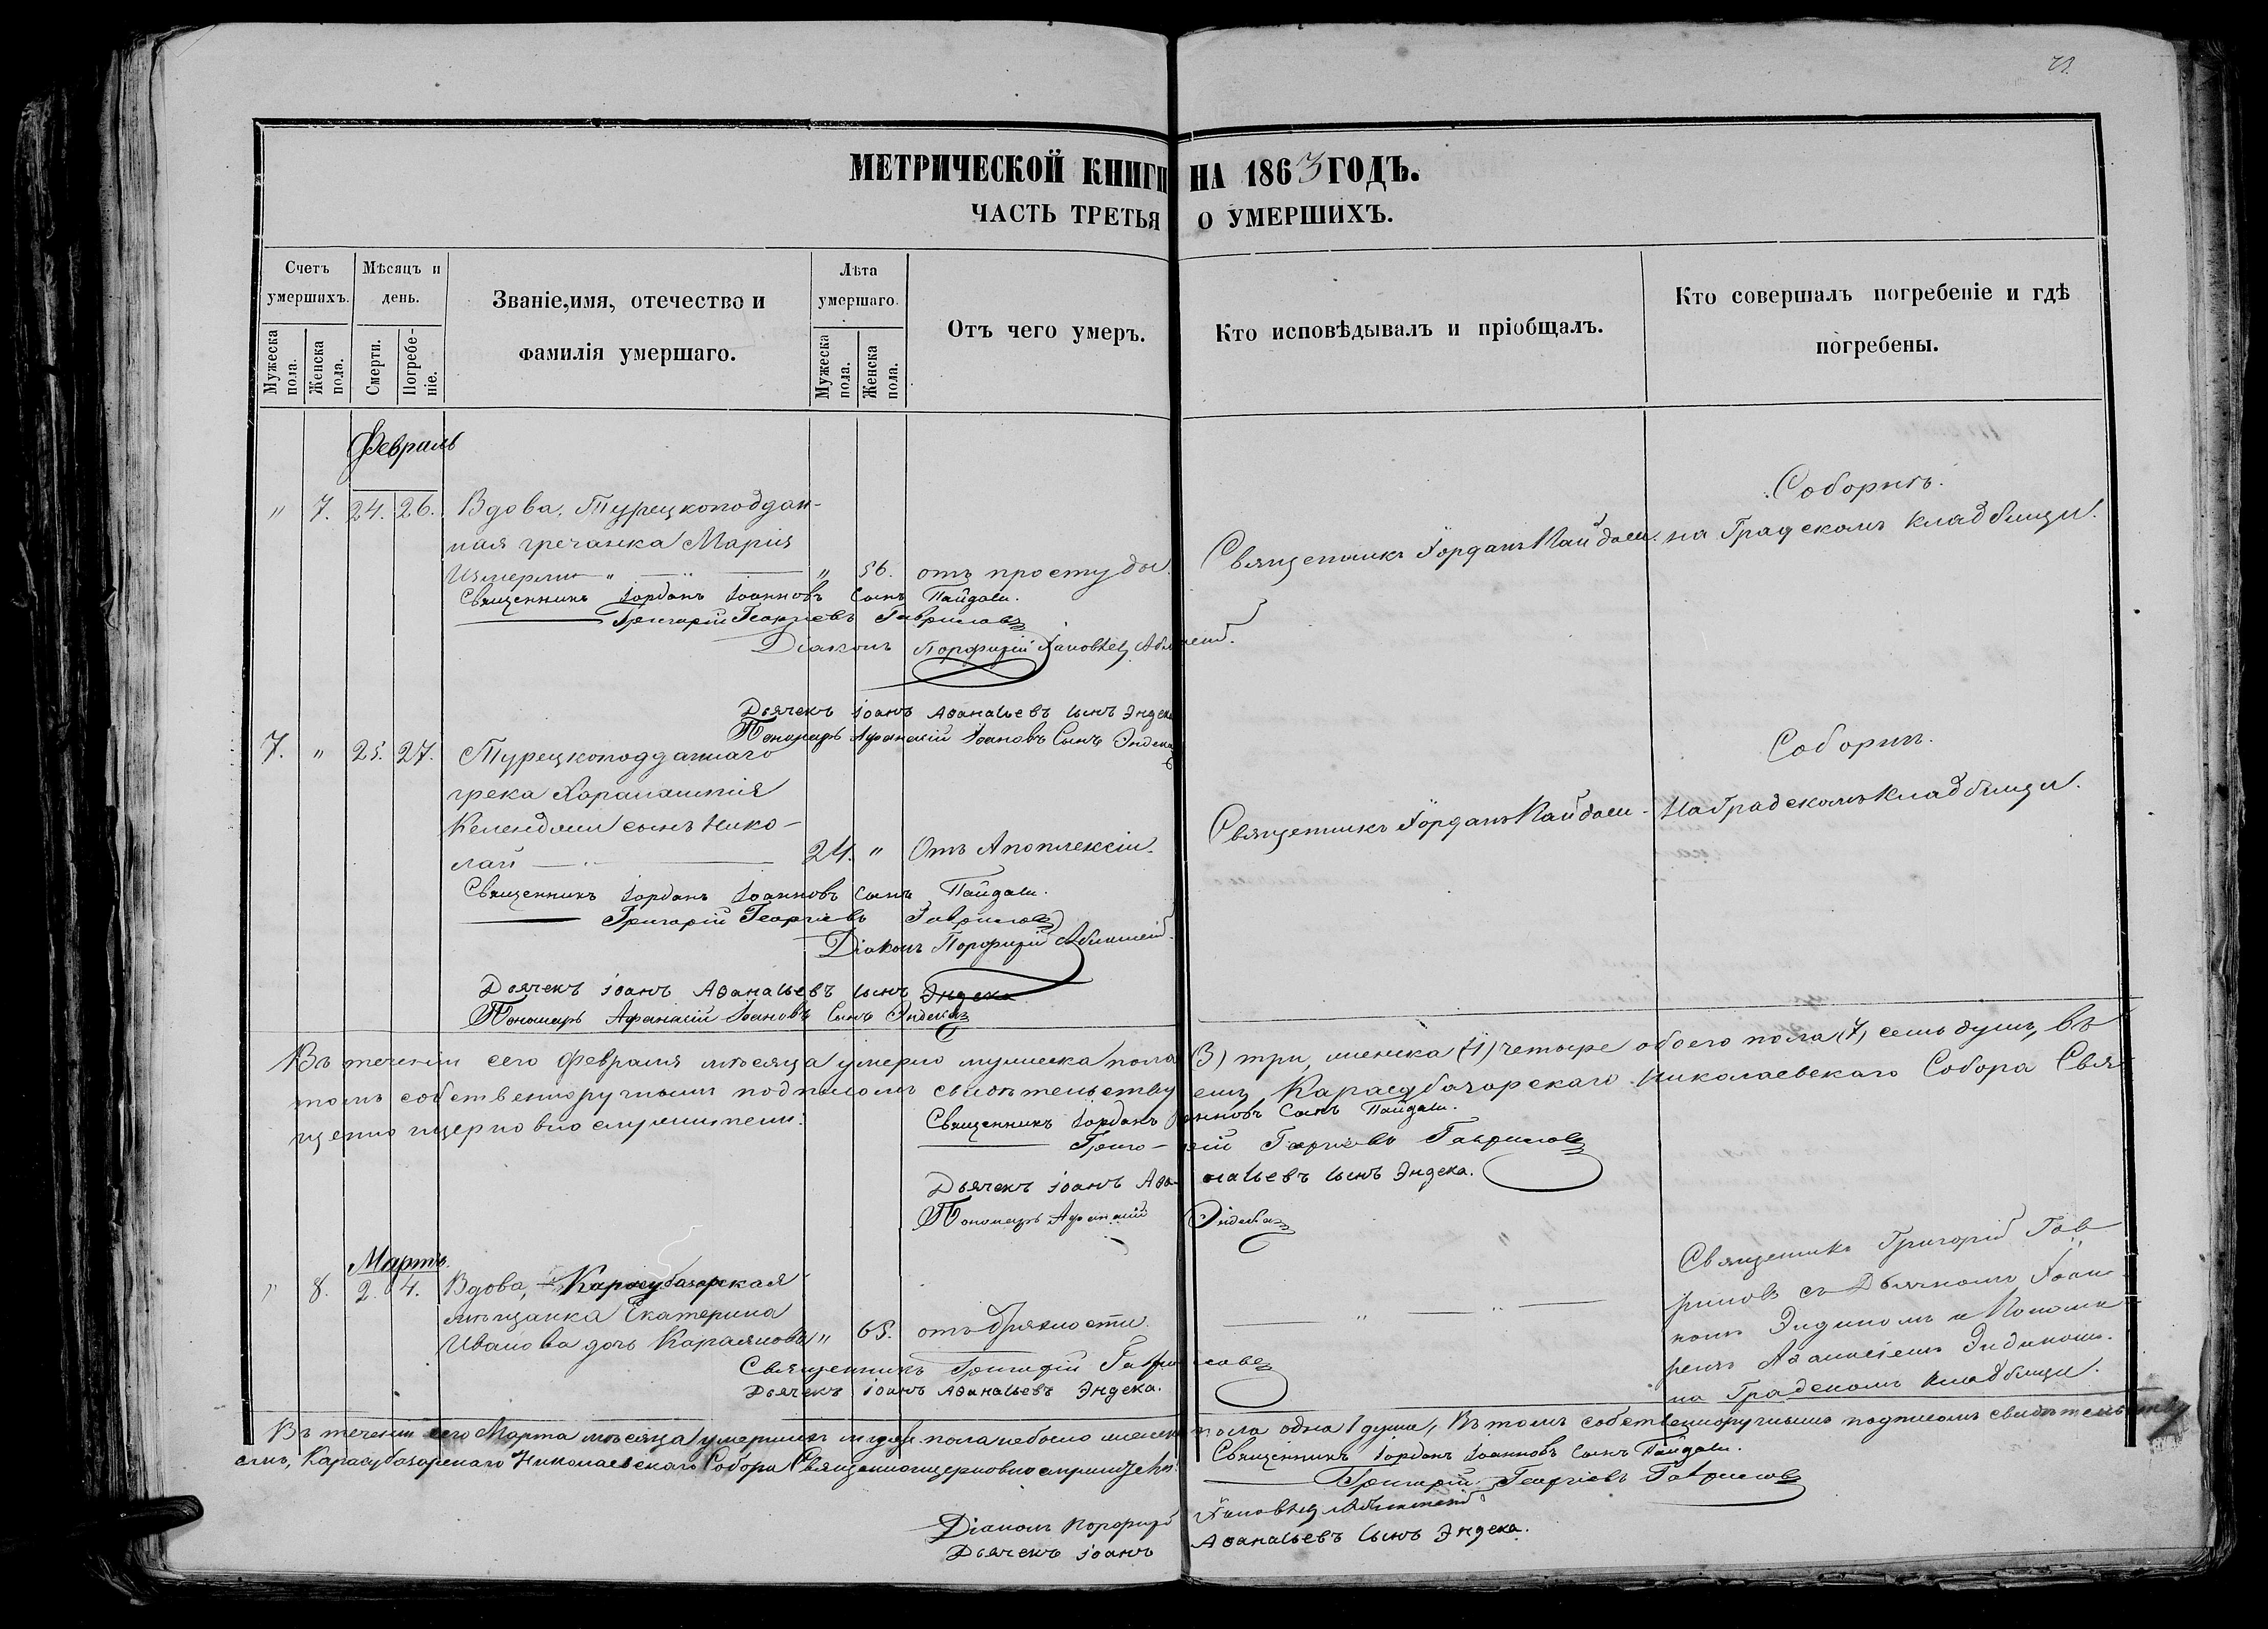 МЕТРИЧЕСКОЙ КНИГИ НА 1863 ГОДЪ.
ЧАСТЬ ТРЕТЬЯ О УМЕРШИХЪ.
Счетъ умершихъ.
Мужеска пола.
Женска пола.
Мѣсяцъ и день.
Смерти.
Погребе-ніе.
Званіе,имя, отечество и
фамилія умершаго.
Лѣта умершаго.
Мужеска пола.
Женска пола.
Отъ чего умеръ.
Кто исповѣдывалъ и пріобщалъ.
Кто совершалъ погребеніе и гдѣ
погребены.
Февраль
" 7. 24. 26. Вдова, Турецкоподдан-
ная гречанка Марія
" 56. отъ простуды. Священникъ Іорданъ Пайдаши.
Соборнѣ.
на Градскомъ кладбищи.
Священникъ Іорданъ Іоанновъ сынъ Пайдаши.
Григорій Георгіевъ Гавриловъ
Діаконъ Порфирій
Дьячекъ Іоанъ Аѳанасьевъ сынъ Эндека
Пономарь Афанасій Іоановъ Сынъ Эндека
7. " 25. 27. Турецкоподданнаго
грека Харалампія
сынъ Нико-
лай 24. " Отъ Апоплексіи. Священникъ Іорданъ Пайдаши
Соборнѣ.
На Градскомъ Кладбищи.
Священникъ Іорданъ Іоанновъ сынъ Пайдаши.
Григорій Георгіевъ Гавриловъ
Діаконъ Порфирій
Дьячекъ Іоанъ Аѳанасьевъ сынъ Эндека
Пономарь Афанасій Іоановъ Сынъ Эндека
Въ теченіи сего Февраля мѣсяца умерло мужеска пола (3) три, женска (4) четыре обоего пола (7) семь душъ, въ
томъ собственноручнымъ подписомъ свидѣтельствуемъ, Карасубазарскаго Николаевскаго Собора Свя-
щенно церковно служители:
Священникъ Іорданъ Іоанновъ сынъ Пайдаши.
Григорій Георгіевъ Гавриловъ
Дьячекъ Іоанъ Аѳанасьевъ сынъ Эндека.
Пономарь Афанасій Эндека
Мартъ.
" 8. 2. 4. Вдова, Карасубазарская
мѣщанка Екатерина
Иванова дочь " 65. отъ дряхлости.
Священникъ Григорій Гав-
риловъ съ Дьячкомъ Іоан-
номъ Эндекомъ и Понома-
ремъ Аѳанасіемъ Эндекомъ.
на Градскомъ кладбищи.
Священникъ Григорій Гавриловъ
Дьячекъ Іоанъ Аѳанасьевъ Эндека.
Въ теченіи сего Марта мѣсяца умершихъ мужеск. пола небыло женск. пола одна 1 душа, Въ томъ собственноручнымъ подписомъ свидѣтельству-
емъ, Карасубазарскаго Николаевскаго Собора Священноцерковнослужители:
Священникъ Іорданъ Іоанновъ сынъ Пайдаши.
Григорій Георгіевъ Гавриловъ
Діаконъ Порфирій
Дьячекъ Іоанъ Аѳанасьевъ сынъ Эндека.